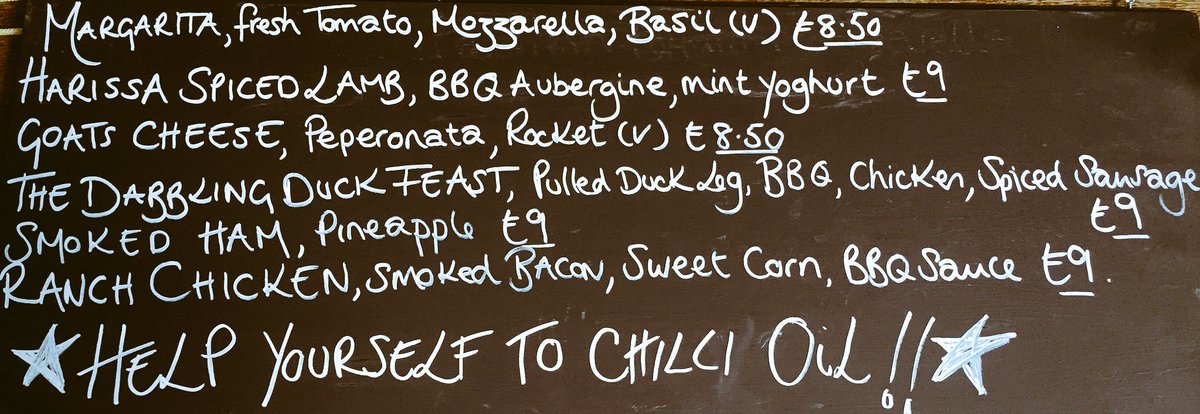 MARGARITA, fresh Tomato, Mozzarella, Basil (v) £8.50
HARISSA SPICED LAMB, BBQ Aubergine, mint yoghurt £9
GOATS CHEESE, Peperonata, Rocket (v) £8.50
THE DABBLING DUCK FEAST, Pulled Duck Leg, BBQ, Chicken, Spiced Sausage
£9
SMOKED HAM, Pineapple £9
RANCH CHICKEN, Smoked BACON, Sweet Corn, BBQ Sauce £9.
HELP YOURSELF TO CHILLI OiL!!